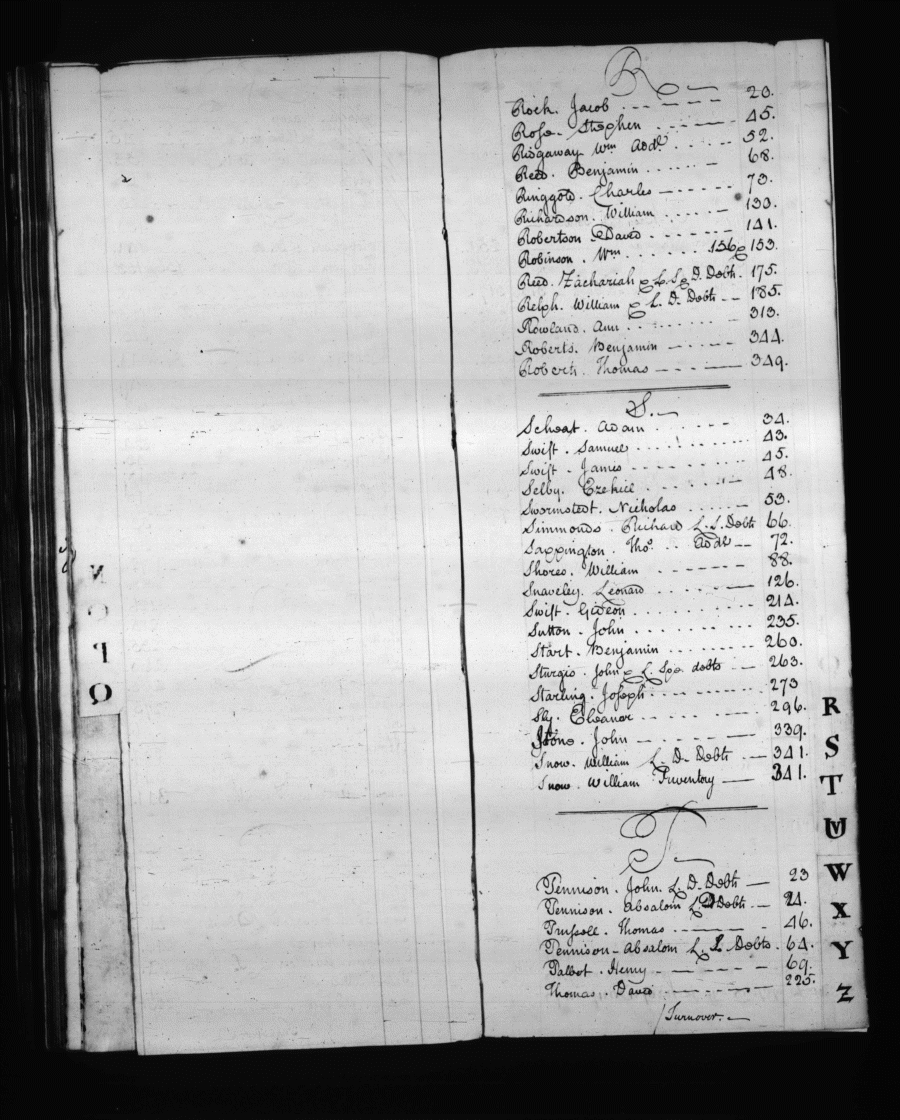 R
Rock. Jacob 20.
Rose. Stephen 45.
Ridgaway Wm Addl. 52.
Reed. Benjamin 68.
Ringgold. Charles 73.
Richardson. William 133.
Robertson David 141.
Robinson. Wm. 136 & 153.
Reed. Zachariah & L. S. & D. Debts. 175.
Relph. William & L. D. Debts 185.
Rowland. Ann 313.
Roberts. Benjamin 344.
Roberts. Thomas 349.
S.
Scheat. Adam 34.
Swift. Samuel 43.
Swift. James 45.
Selby. Ezekiel 48.
Swormstedt. Nicholas 53.
Simmonds. Richard L. S. Debts 66.
Sappington. Thos. Addl 72.
Shores. William 88.
Snaveley. Leonard 126.
Swift. Gideon 214.
Sutton. John 235.
Start. Benjamin 260.
Sturgis. John & L. Spe debts 263.
Starling. Joseph 273
Sly. Eleanor 296.
Stone. John 339.
Snow. William L. D. Debts 341.
Snow. William Inventory 341.
T
Tennison. John. L. D. Debts 23
Tennison. Absalom L. D Debts 24.
Trussell. Thomas 46.
Tennison - Absalom L. L Debts. 64.
Talbot. Henry 69.
Thomas. David 225.
/Turnover.
R
S
T
UV
W
X
Y
Z